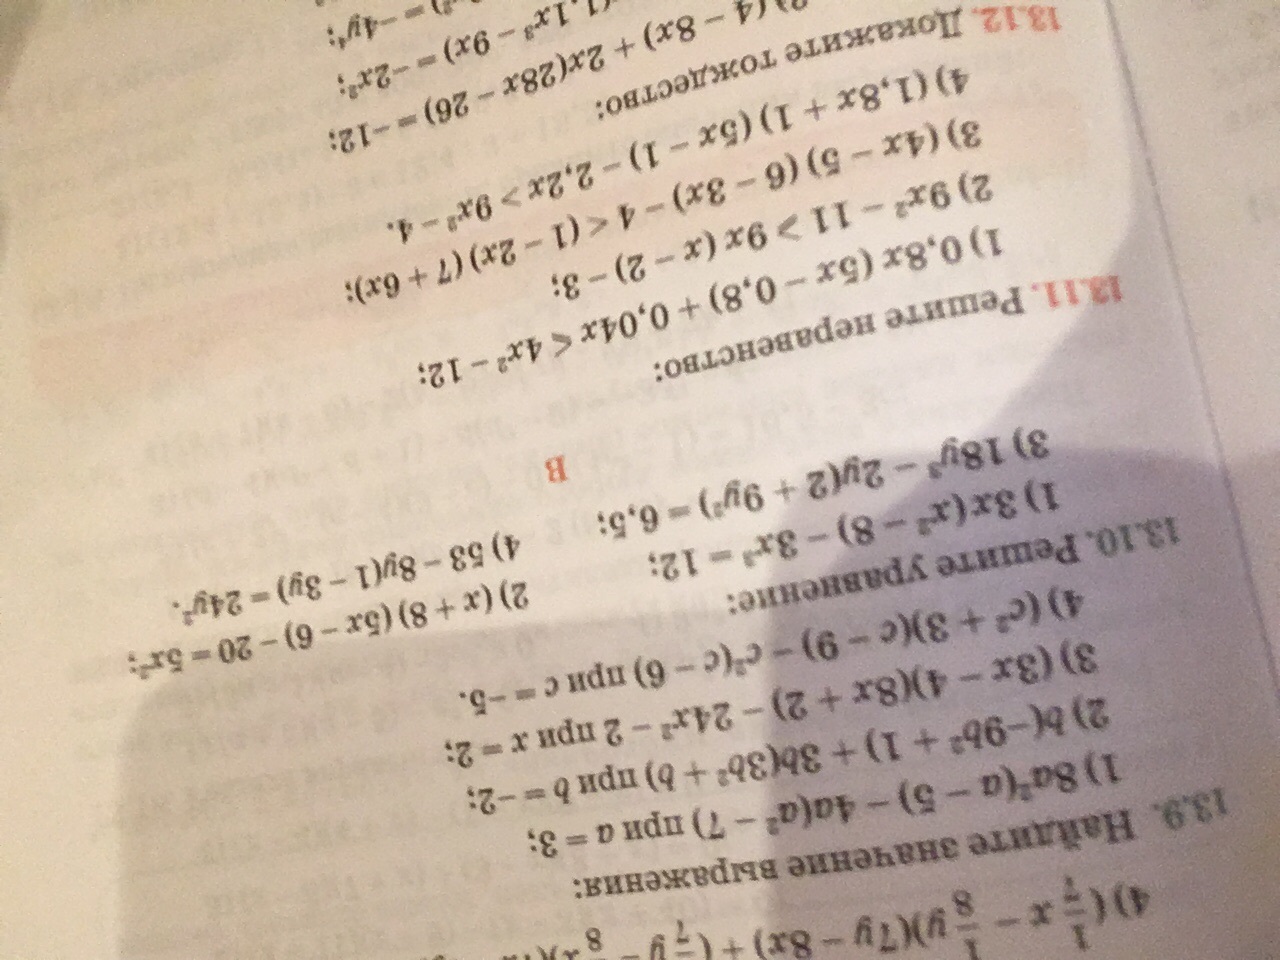 4) (1/7 x − 1/8 y)(7y − 8x) + (1/7 y −
13.9. Найдите значение выражения:
1) 8a²(a − 5) − 4a(a² − 7) при a = 3;
2) b(−9b² + 1) + 3b(3b² + b) при b = −2;
3) (3x − 4)(8x + 2) − 24x² − 2 при x = 2;
4) (c² + 3)(c − 9) − c²(c − 6) при c = −5.
13.10. Решите уравнение:
1) 3x(x² − 8) − 3x³ = 12; 2) (x + 8)(5x − 6) − 20 = 5x²;
3) 18y³ − 2y(2 + 9y²) = 6,5; 4) 53 − 8y(1 − 3y) = 24y².
В
13.11. Решите неравенство:
1) 0,8x (5x − 0,8) + 0,04x < 4x² − 12;
2) 9x² − 11 > 9x (x − 2) − 3;
3) (4x − 5) (6 − 3x) − 4 < (1 − 2x) (7 + 6x);
4) (1,8x + 1) (5x − 1) − 2,2x > 9x² − 4.
13.12. Докажите тождество:
(4 − 8x) + 2x(28x − 26) = −12;
1,1x³ − 9x) = −2x²;
= −4y⁴;